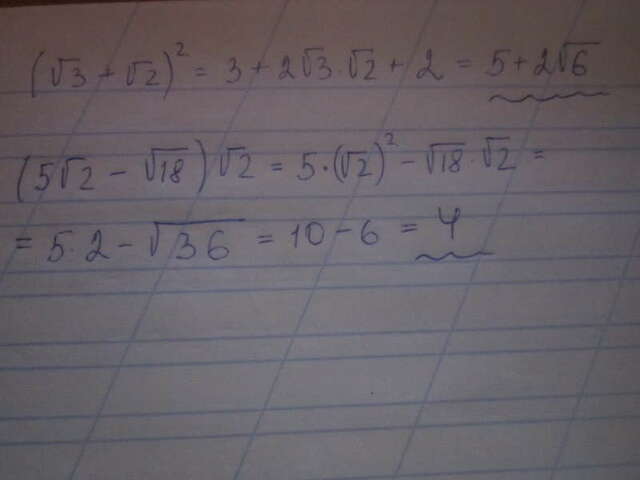 (√3 + √2)² = 3 + 2√3·√2 + 2 = 5 + 2√6
(5√2 - √18)√2 = 5·(√2)² - √18·√2 =
= 5·2 - √36 = 10 - 6 = 4